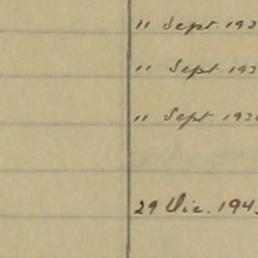 11 Sept. 193
11 Sept. 193
11 Sept. 193
29 Dic. 194